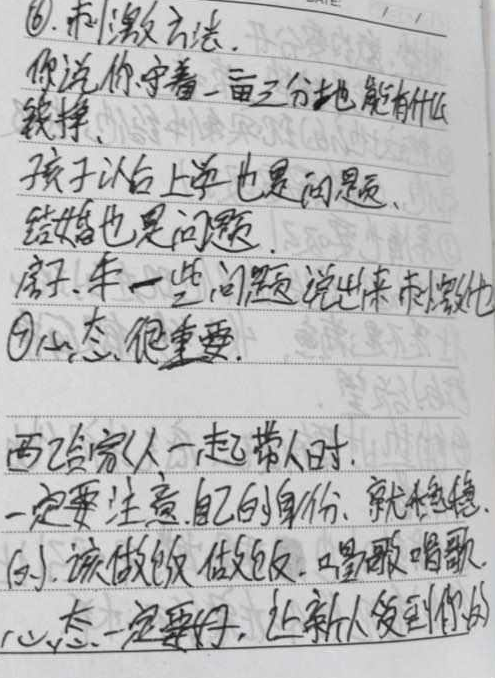 ⑥.刺激方法.
你说你守着一亩三分地能有什么
钱挣.
孩子以后上学也是问题、
结婚也是问题.
房子.车一些问题说出来刺激他
⑦心态.很重要.
西乙合家人一起带人时.
一定要注意.自己的身份、就稳稳.
的.该做饭做饭.唱歌唱歌.
心态一定要好.让新人受到你的